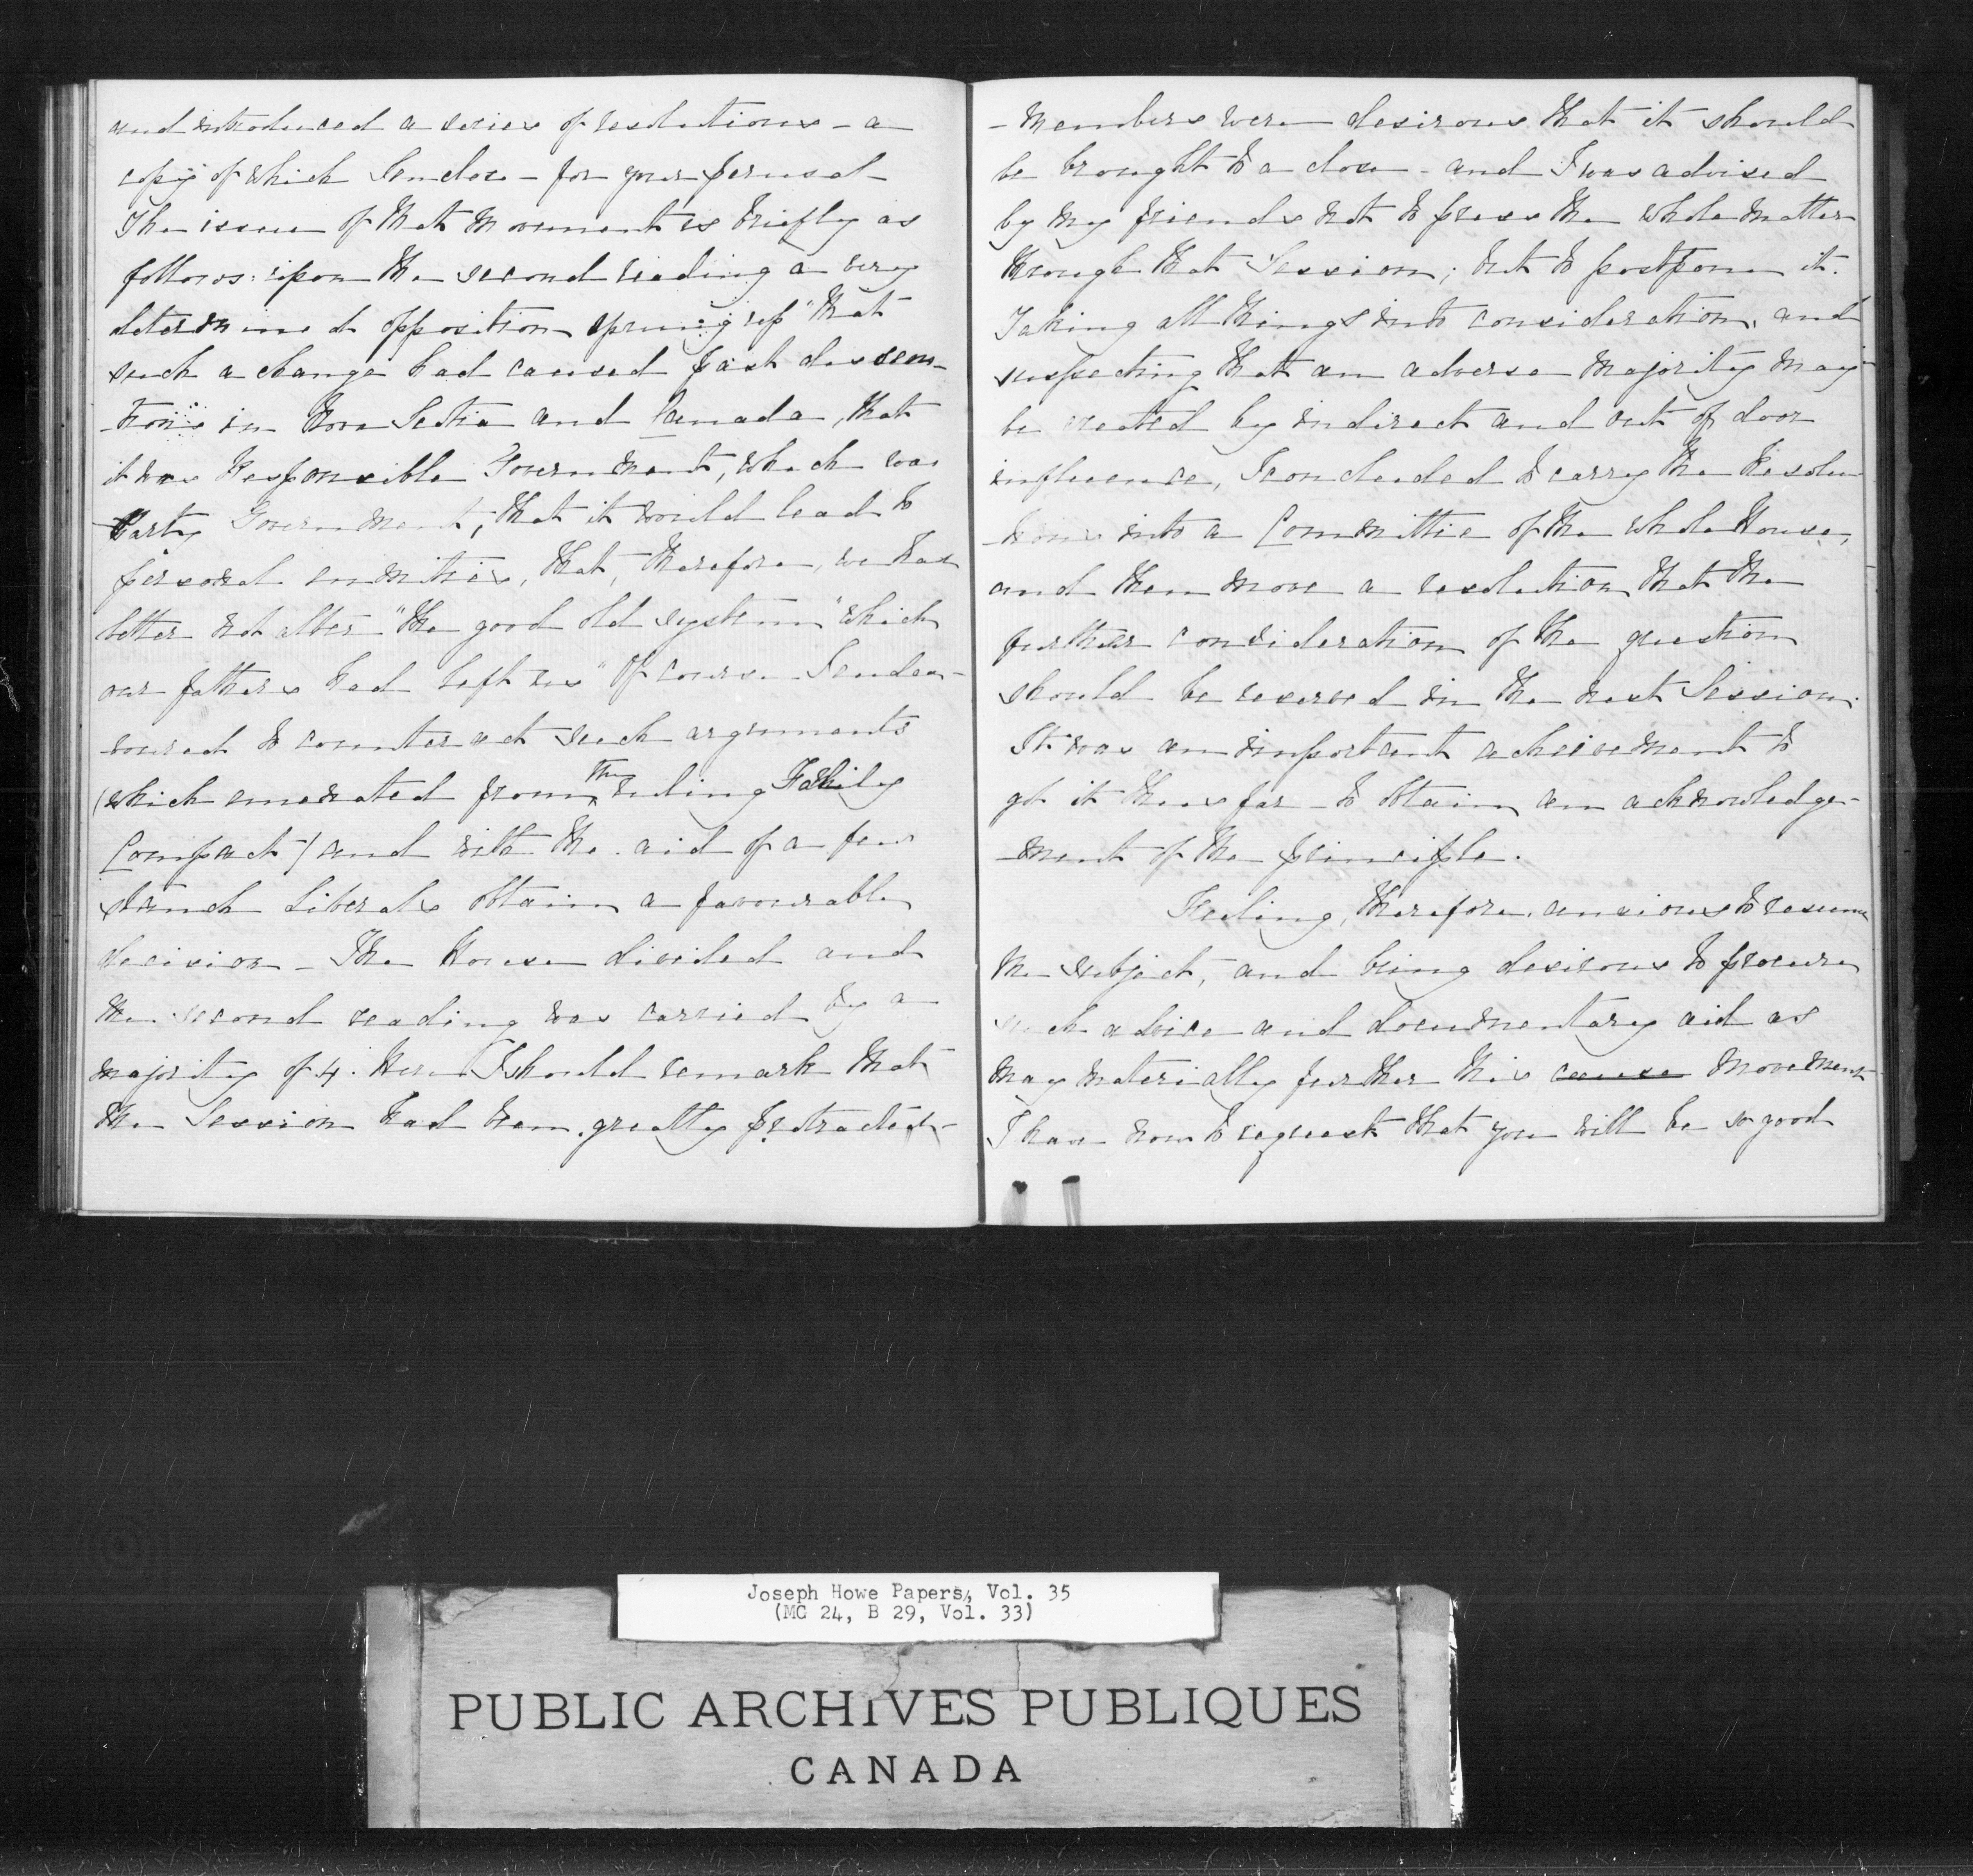 and introduced a series of resolutions - a
copy of which I enclose - for your perusal
The issue of that movement is briefly as
follows: upon the second reading a very
determined opposition sprung up "that
such a change had caused past dissen-
-tions in Nova Scotia and Canada, that
it was Responsible Government, which was
Party Government; that it would lead to
personal enmities, that, therefore, we had
better not alter "the good old system" which
our fathers had left us" Of course I endea-
-voured to counteract such arguments
(which emenated from the ruling Family
Compact) and with the aid of a few
staunch liberals obtain a favourable
decision - The House divided and
the second reading was carried by a
majority of 4. Here I should remark that
the Session had been greatly protracted -
- Members were desirous that it should
be brought to a close - and I was advised
by my friends not to press the whole matter
through that Session; but to postpone it.
Taking all things into consideration, and
suspecting that an adverse majority may
be created by indirect and out of door
influence, I concluded to carry the Resolu
-tions into a Committee of the whole House,
and then move a resolution that the
further consideration of the question
should be reserved in the next Session.
It was an important achievement to
get it thus far - to obtain an acknowledge-
-ment of the principle.
Feeling, therefore, anxious to resume
the subject, and being desirous to procure
such advice and documentary aid as
may materially further this cause movement
I have now to request that you will be so good
Joseph Howe Papers, Vol. 35
(MG 24, B 29, Vol. 33)
PUBLIC ARCHIVES PUBLIQUES
CANADA